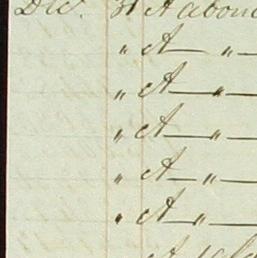 Dec. 31 A aboun
" A — " —
" A — " —
" A — " —
" A — " —
" A — " —
A